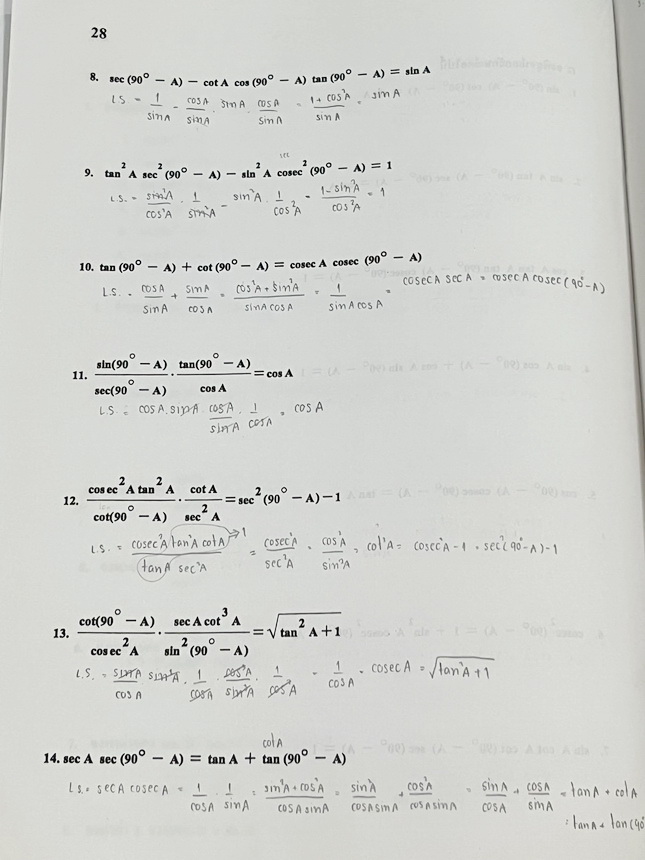 28
8. sec (90° − A) − cot A cos (90° − A) tan (90° − A) = sin A
L.S = 1/sin A − cos A/sin A · sin A · cos A/sin A = 1 + cos²A/sin A = sin A
sec
9. tan² A sec² (90° − A) − sin² A cosec² (90° − A) = 1
L.S. = sin²A/cos²A · 1/sin²A − sin²A · 1/cos²A = 1 − sin²A/cos²A = 1
10. tan (90° − A) + cot (90° − A) = cosec A cosec (90° − A)
L.S. = cos A/sin A + sin A/cos A = cos²A + sin²A/sin A cos A = 1/sin A cos A = cosec A sec A = cosec A cosec (90° − A)
11. sin(90° − A)/sec(90° − A) · tan(90° − A)/cos A = cos A
L.S = cos A · sin A · cos A/sin A · 1/cos A = cos A
12. cosec² A tan² A/cot(90° − A) · cot A/sec² A = sec² (90° − A) − 1
L.S. = cosec²A tan²A cot A/tan A sec²A 1 = cosec²A/sec²A = cos²A/sin²A = cot²A = cosec²A − 1 = sec²(90° − A) − 1
13. cot(90° − A)/cosec² A · sec A cot³ A/sin² (90° − A) = √tan² A + 1
L.S. = sin A/cos A · sin²A · 1/cos A · cos³A/sin³A · 1/cos²A = 1/cos A = cosec A = √tan²A + 1
cot A
14. sec A sec (90° − A) = tan A + tan (90° − A)
L.S. = sec A cosec A = 1/cos A · 1/sin A = sin²A + cos²A/cos A sin A = sin²A/cos A sin A + cos²A/cos A sin A = sin A/cos A + cos A/sin A = tan A + cot A
= tan A + tan (90°